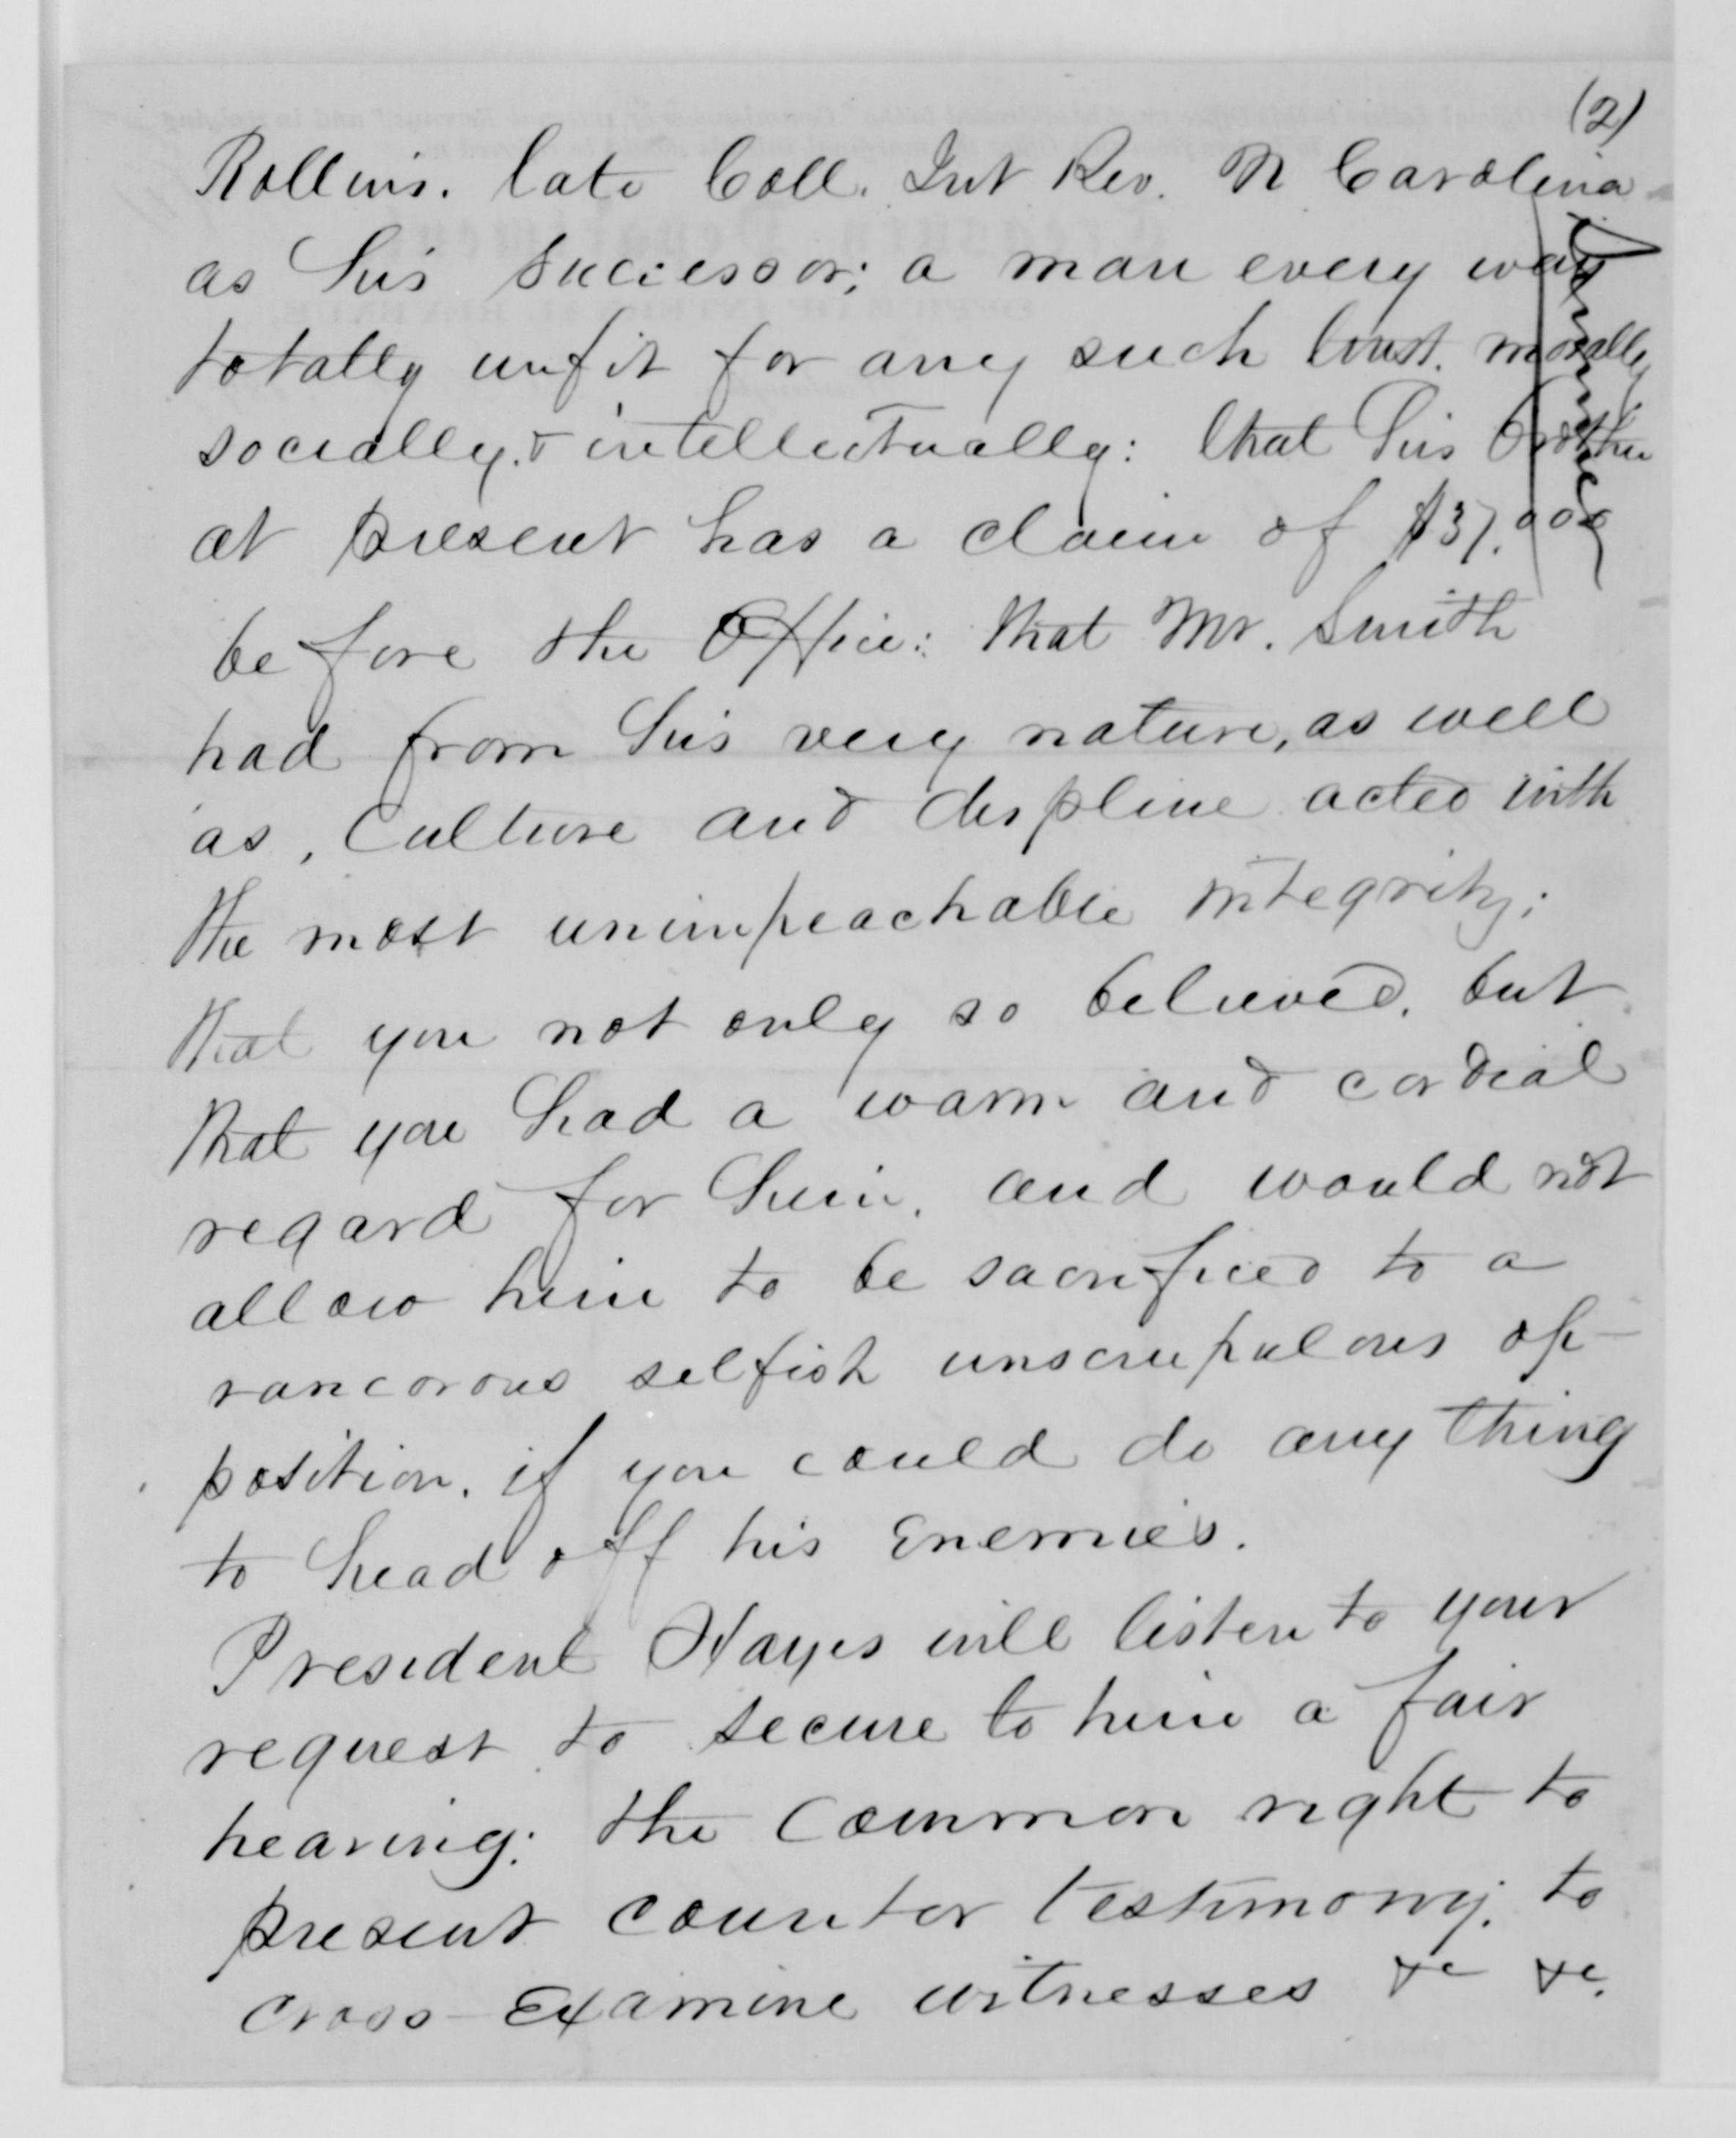 (2)
Rollins. late Coll. Int Rev. N Carolina
as his successor; a man every way
totally unfit for any such trust. morally
socially. & intellectually: that his brother
at present has a claim of $37.000
before the Office: that Mr. Smith
had from his very nature, as well
as, Culture and displine acted with
the most unimpeachable integrity;
that you not only so believed. but
that you had a warm and cordial
regard for him. and would not
allow him to be sacrificed to a
rancorous selfish unscrupulous op-
position. if you could do any thing
to head off his Enemies.
President Hayes will listen to your
request to secure to him a fair
hearing: the Common right to
present counter testimony: to
cross-Examine witnesses &c &c.